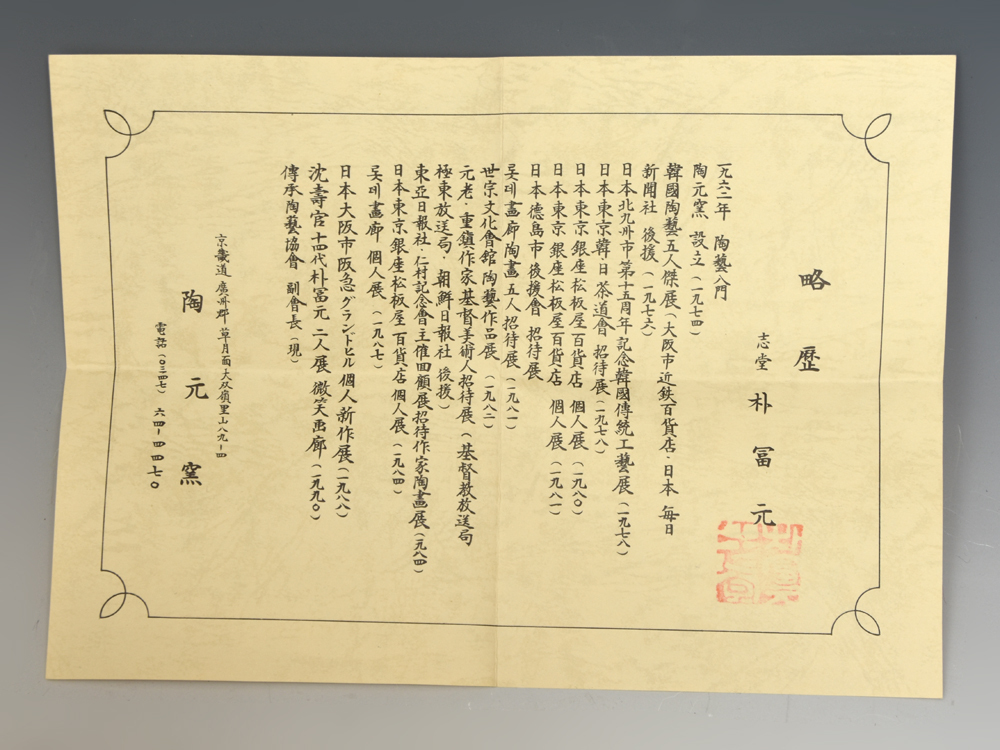 略歴
志堂 朴冨元
一九六二年 陶藝入門
陶元窯 設立(一九七四)
韓國陶藝五人傑展(大阪市近鉄百貨店·日本 毎日
新聞社 後援(一九七六)
日本北九州市第十五周年記念韓國傳統工藝展(一九七八)
日本東京韓·日茶道會 招待展(一九七八)
日本東京銀座松板屋百貨店 個人展(一九八〇)
日本東京銀座松板屋百貨店 個人展(一九八一)
日本德島市後援會 招待展
롯데畵廊陶畵五人招待展(一九八一)
世宗文化會館陶藝作品展(一九八二)
元老·重鎭作家基督美術人招待展(基督敎放送局
極東放送局·朝鮮日報社 後援)
東亞日報社·仁村記念會主催回顧展招待作家陶畵展(一九八四)
日本東京銀座松板屋百貨店 個人展(一九八四)
롯데畵廊 個人展(一九八七)
日本大阪市阪急グランドヒル個人新作展(一九八八)
沈壽官十四代朴冨元 二人展 微笑画廊(一九九〇)
傳承陶藝協會 副會長(現)
京畿道 廣州郡 草月面大双嶺里山八九-四
陶元窯
電話(〇三四七)六四-四四七〇